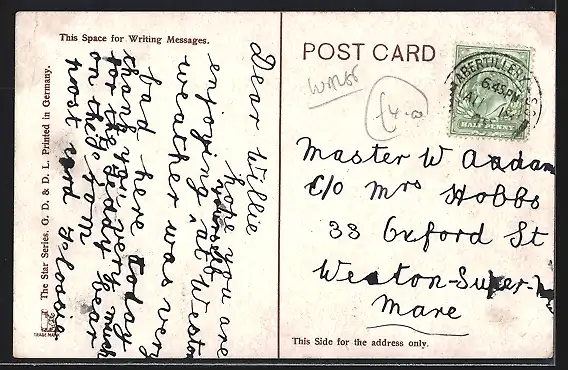 This Space for Writing Messages.
Dear Willie
hope you are
enjoying yourself at Weston
weather was very
bad here today
thank you very much
for the teddy bear
on the
post card
The Star Series. G. D. & D. L. Printed in Germany.
TRADE MARK
POST CARD
£4.00
ABERTILLERY
6.45 PM
HALFPENNY
Master W
c/o Mrs Hobbs
33 Oxford St
Weston-Super-
Mare
This Side for the address only.